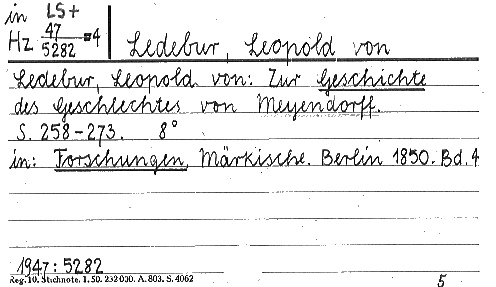 in LS+
Hz 47/5282 =4
Ledebur, Leopold von
Ledebur, Leopold von: Zur Geschichte
des Geschlechtes von Meyendorff.
S. 258-273. 8°
in: Forschungen, Märkische. Berlin 1850. Bd. 4
1947: 5282
Reg. 10. Stichnote. 1. 50. 232 000. A. 803. S. 4062
5